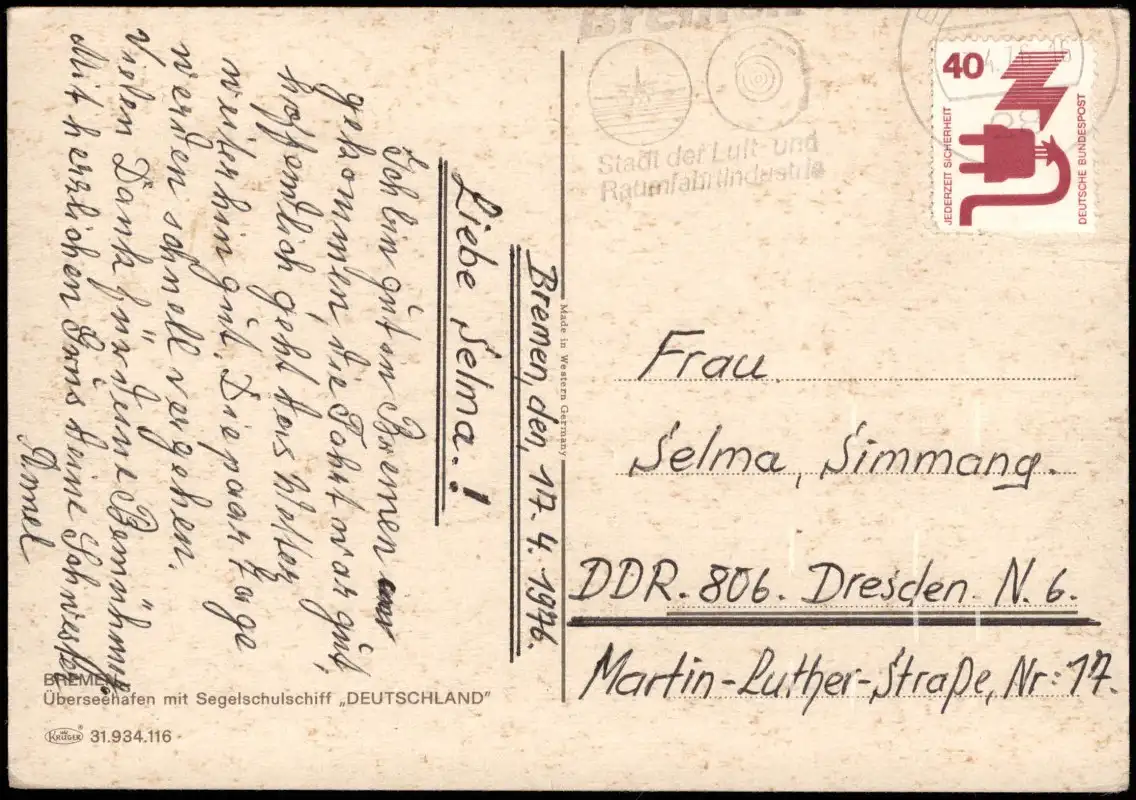 Bremen, den, 17. 4. 1976.
Liebe Selma.!
Ich bin gut in Bremen an
gekommen, die Fahrt war gut,
hoffendlich geht
weiterhin gut. Die paar Tage
werden schnell vergehen.
Vielen Dank für deine Bemühung.
Mit herzlichen Grus deine Schwester
BREMEN
Überseehafen mit Segelschulschiff „DEUTSCHLAND"
KRÜGER 31.934.116
Made in Western Germany
Bremen
Stadt der Luft- und
Raumfahrtindustrie
40
JEDERZEIT SICHERHEIT
DEUTSCHE BUNDESPOST
Frau.
Selma, Simmang.
DDR. 806. Dresden. N. 6.
Martin-Luther-Straße, Nr: 17.